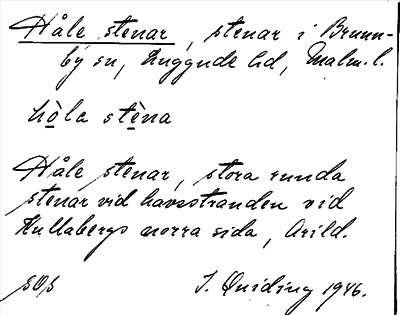 Håle stenar, stenar i Brunn-
by sn, Luggude hd, Malm. l.
hòla stèna
Håle stenar, stora runda
stenar vid havsstranden vid
Kullabergs norra sida, Arild.
SOS J. Quiding 1946.